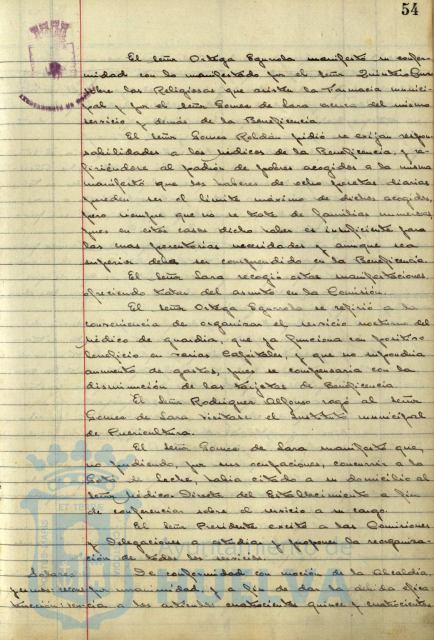 54
El Señor Ortega Egurrola manifestó su confor-
midad con lo manifestado por el Señor Quintero
sobre las Religiosas que asisten la Farmacia munici-
pal y por el Señor Gomez de Lara acerca del mismo
servicio y demás de la Beneficencia
El Señor Gomez Roldán pidió se exijan respon-
sabilidades a los Médicos de la Beneficencia, y re-
firiéndose al padrón de pobres acogidos a la misma
manifestó que los haberes de ocho pesetas diarias
pueden ser el límite máximo de dichos acogidos,
pero siempre que no se trate de familias numerosas
pues en estos casos dicho haber es insuficiente para
las mas perentorias necesidades y aunque sea
superior debe ser comprendido en la Beneficencia.
El Señor Lara recogió estas manifestaciones,
ofreciendo tratar del asunto en la Comisión.
El Señor Ortega Egurrola se refirió a la
conveniencia de organizar el servicio nocturno del
Médico de guardia, que ya funciona con positivo
beneficio en varias Capitales, y que no supondría
aumento de gastos, pues se compensaria con la
disminución de las tarjetas de Beneficencia.
El Señor Rodriguez Alfonso rogó al Señor
Gomez de Lara visitase el Instituto municipal
de Puericultura.
El Señor Gomez de Lara manifestó que,
no pudiendo, por sus ocupaciones, concurrir a la
Gota de Leche, habia citado a su domicilio al
Señor Médico-Director del Establecimiento a fin
de conferenciar sobre el servicio a su cargo.
El Señor Presidente excitó a las Comisiones
y Delegaciones a estudiar y proponer la reorganiza-
ción de todos los servicios.
Solares De conformidad con moción de la Alcaldía,
por unanimidad, y a fin de dar la debida efica-
cia a los artículos cuatrocientos quince y cuatrocientos